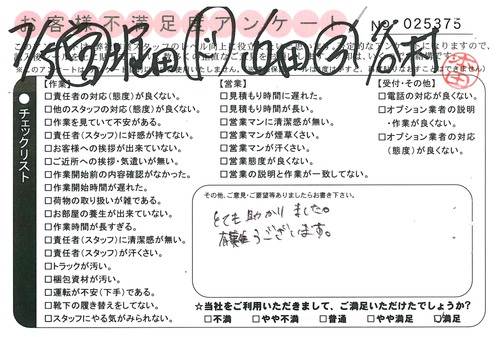 お客様不満足度アンケート
No. 025375
チェックリスト
【作業】
□責任者の対応(態度)が良くない。
□他のスタッフの対応(態度)が良くない。
□作業を見ていて不安がある。
□責任者(スタッフ)に好感が持てない。
□お客様への挨拶が出来ていない。
□ご近所への挨拶・気遣いが無い。
□作業開始前の内容確認がなかった。
□作業開始時間が遅れた。
□荷物の取り扱いが雑である。
□お部屋の養生が出来ていない。
□作業時間が長すぎる。
□責任者(スタッフ)に清潔感が無い。
□責任者(スタッフ)が汗くさい。
□トラックが汚い。
□梱包資材が汚い。
□運転が不安(下手)である。
□靴下の履き替えをしてない。
□スタッフにやる気がみられない。
【営業】
□見積もり時間に遅れた。
□見積もり時間が長い。
□営業マンに清潔感が無い。
□営業マンが煙草くさい。
□営業マンが汗くさい。
□営業態度が良くない。
□営業の説明と作業が一致してない。
【受付・その他】
□電話の対応が良くない。
□オプション業者の説明
・作業が良くない。
□オプション業者の対応
(態度)が良くない。
その他、ご意見・ご要望等ありましたらお書き下さい。
とても助かりました。
うございます。
★当社をご利用いただきまして、ご満足いただけたでしょうか?
□不満 □やや不満 □普通 □やや満足 □満足